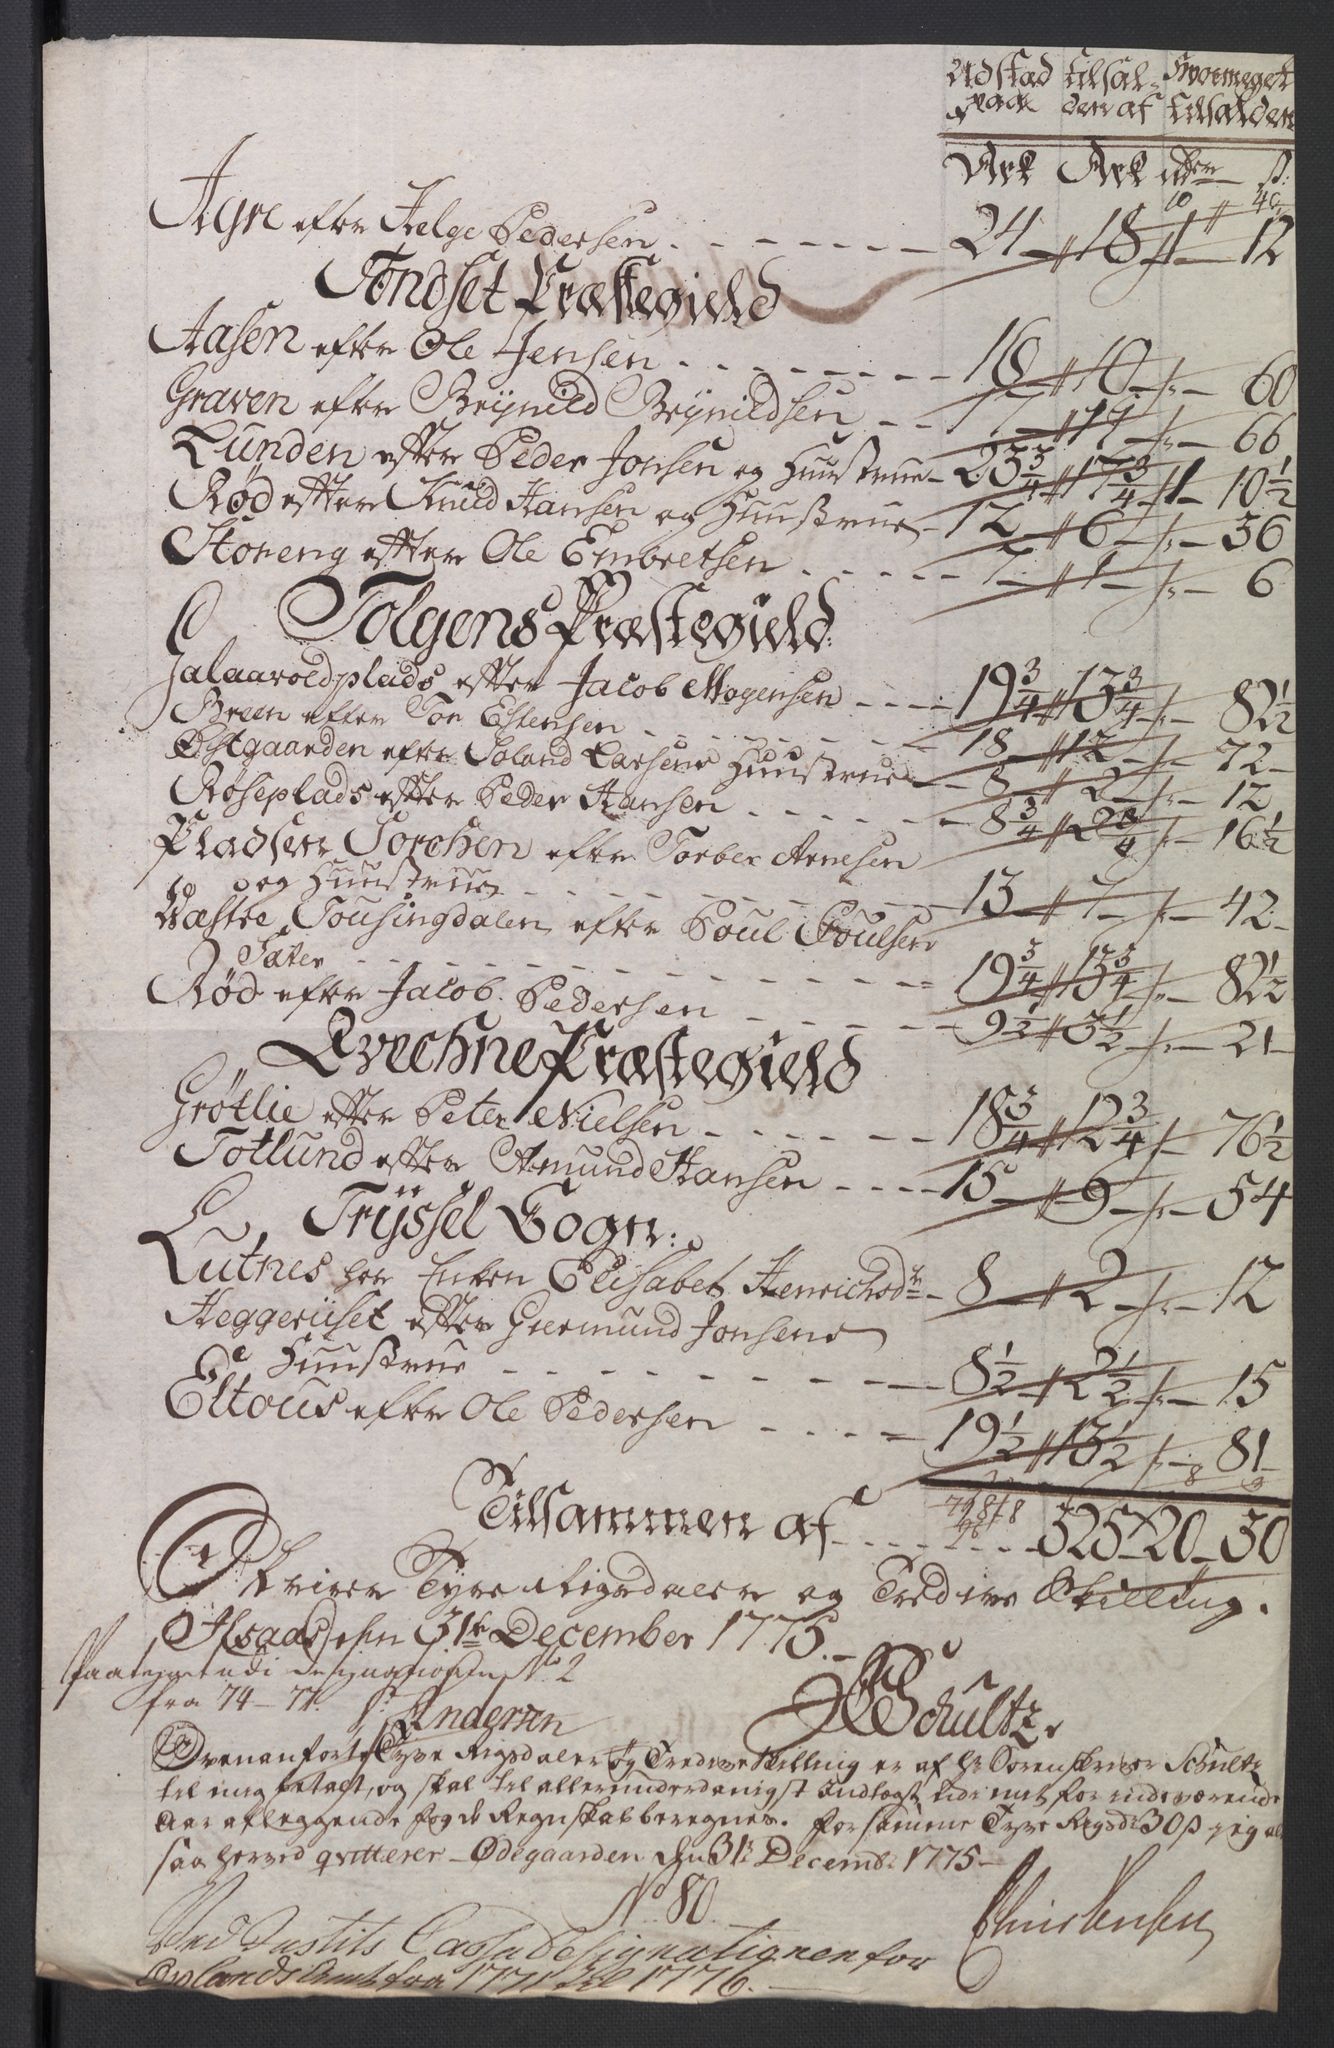 Udstæd paa | tilfalden af | Hvormeget tilfalden
Ark | Ark | rdr | ß:
10 40
Agre efter Helge Pedersen - - - - 24 18 1 12
Tøndset Præstegield
Aasen efter Ole Jensen - - - - 16 10 - 60
Graven efter Brynild Brynildsen - - 17 11 - 66
Lunden efter Peder Jonsen og Huustrue - 23 3/4 17 3/4 1 10 1/2
Rød efter Knud Hansen og Huustrue - 12 6 - 36
Storeng efter Ole Embretsen - - - - 7 1 - 6
Tolgens Præstegield
Jalaarvoldplads efter Jacob Mogensen - - - 19 3/4 13 3/4 - 82 1/2
Breen efter Tor Estensen - - - - 18 12 - 72
Østgaarden efter Soland Larsens Huustrue - 8 2 - 12
Røseplads efter Peder Hansen - - - - 8 3/4 2 3/4 - 16 1/2
Pladsen Torchen efter Torber Arnesen
og Huustrue - - - - 13 7 - 42
Væstre Tousingdalen efter Poul Poulsen
Sæter - - - - 19 3/4 13 3/4 - 82 1/2
Rød efter Jacob Pedersen - - - - 9 1/2 3 1/2 - 21
Qvechne Præstegield
Grøtlie efter Peter Nielsen - - - - 18 3/4 12 3/4 - 76 1/2
Totlund efter Amund Hansen - - - - 15 9 - 54
Tryssel Sogn:
Lutnes hos Enken Elisabet Henrichsdtr - 8 2 - 12
Heggeriiset efter Giermund Jonsens
Huustrue - - - - 8 1/2 2 1/2 - 15
Eltous efter Ole Pedersen - - - - 19 1/2 13 1/2 - 81
Tilsammen af - - - - 325 - 20 - 30
Skriver Tyve Rigsdaler og Tredive Skilling.
Ilsaas den 31te December 1775.
Schultz
Paategnet udi Designationen No 2
fra 74 - 77. Andersen
Ovenanførte Tyve Rigsdaler og Tredive Skilling er af Hr Sorenskriver Schultz
til mig betalt, og skal til allerunderdanigst Indtægt udi mit for indeværende
Aar aflæggende Fogde Regnskab beregnes. for samme Tyve Rigsdr 30 ß jeg
saa herved qvitterer - Ødegaarden den 31te Decembr 1775 -
No 80.
Ved Justits Cassa Designationen for
Oplands Amt for 1771 til 1776.